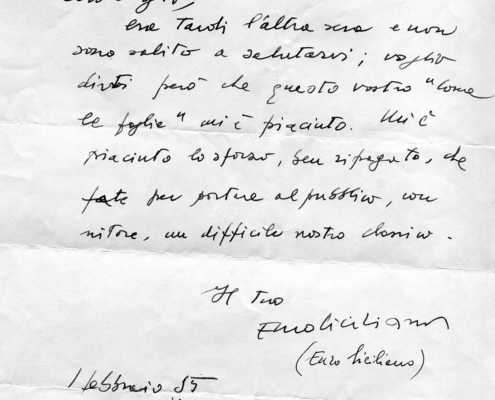 era tardi l'altra sera e non
sono salito a salutarvi; voglio
dirti però che questo vostro "Come
le foglie" mi è piaciuto. Mi è
piaciuto lo sforzo, ben ripagato, che
fate per portare al pubblico, con
nitore, un difficile nostro classico.
Il tuo
Enzo Siciliano
(Enzo Siciliano)
1 febbraio 85